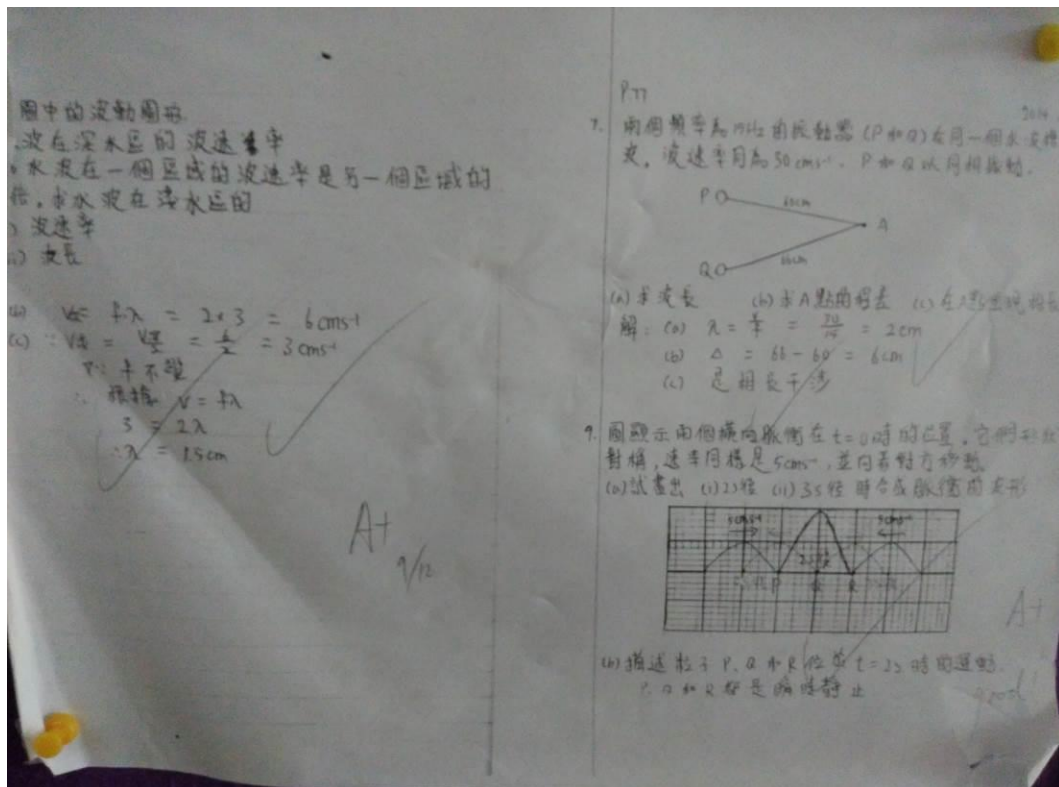 圖中的波動圖形.
波在深水區的波速率
水波在一個區域的波速率是另一個區域的
倍,求水波在淺水區的
) 波速率
) 波長
= fλ = 2×3 = 6cms⁻¹
(c) ∵ V淺 = = = 3cms⁻¹
∵ f不變
∴ 根據 v = fλ
3 = 2λ
∴λ = 1.5cm
A+
9/12
P.77
7. 兩個頻率為 Hz的振動器 (P和Q)在同一個水波槽
波速率同為30cms⁻¹. P和Q以同相振動.
P
60cm
A
Q
66cm
(a) 求波長 (b) 求A點的程差 (c) 在A點
解: (a) λ = = = 2cm
(b) Δ = 66 - 60 = 6cm
(c) 是相長干涉
9. 圖顯示兩個橫向脈衝在t=0時的位置.它們形狀
對稱,速率同樣是5cms⁻¹,並向着對方移動.
(a)試畫出 (i)2s後 (ii)3s後 時合成脈衝的波形
5cms⁻¹
5cms⁻¹
P
Q
R
(b)描述粒子P、Q和R在 t= 時的運動.
P、Q和R都是瞬時靜止
A+